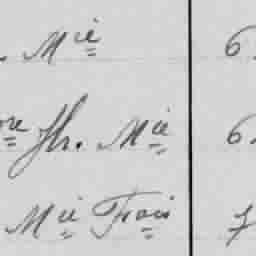 . Mie 6
re Jh. Mie 6
Mie Frois 7